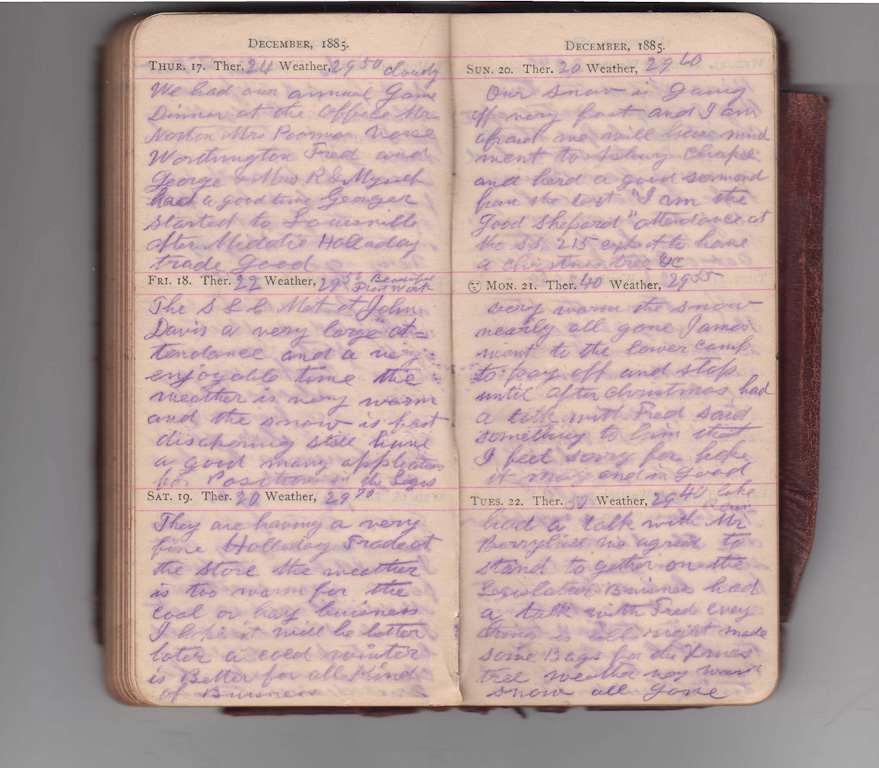 DECEMBER, 1885.
THUR. 17. Ther. 24 Weather, 29 50 cloudy
We had our annual Game
Dinner at the Office Mr
Norton Mrs Poorman
Worthington Fred and
George & Mrs R & Myself
had a good time George
started to Louisville
after Middle Holladay
trade Good
FRI. 18. Ther. 22 Weather, 29 Beautiful
The S & L Met at John
Davis a very large at=
tendance and a very
enjoyable time the
weather is very warm
and the snow is fast
dissapering still have
a good many application
for Position in the Legis
SAT. 19. Ther. 20 Weather, 29 70
They are having a very
fine Holladay Trade at
the store the weather
is too warm for the
coal or any buisness
I hope it will be better
later a cold winter
is Better for all Kind
of Buisness
DECEMBER, 1885.
SUN. 20. Ther. 20 Weather, 29 60
Our snow is going
off very fast and I am
afraid we will have mud
went to Asbury Chapel
and herd a good sermond
from the text "I am the
Good Shepard" attendance at
the S.S. 215 expect to have
a christmas tree &c
MON. 21. Ther. 40 Weather, 29 55
very warm the snow
nearly all gone James
went to the lower camp
to pay off and stop
until after christmas had
a talk with Fred said
something to him that
I feel sorry for hope
it may end in good
TUES. 22. Ther. 50 Weather, 29 40
had a talk with Mr
Berryhill we agreed to
stand together on the
Legislative Buisness had
a talk with Fred every
thing is all right made
some Bags for the Xmas
tree weather very warm
snow all gone